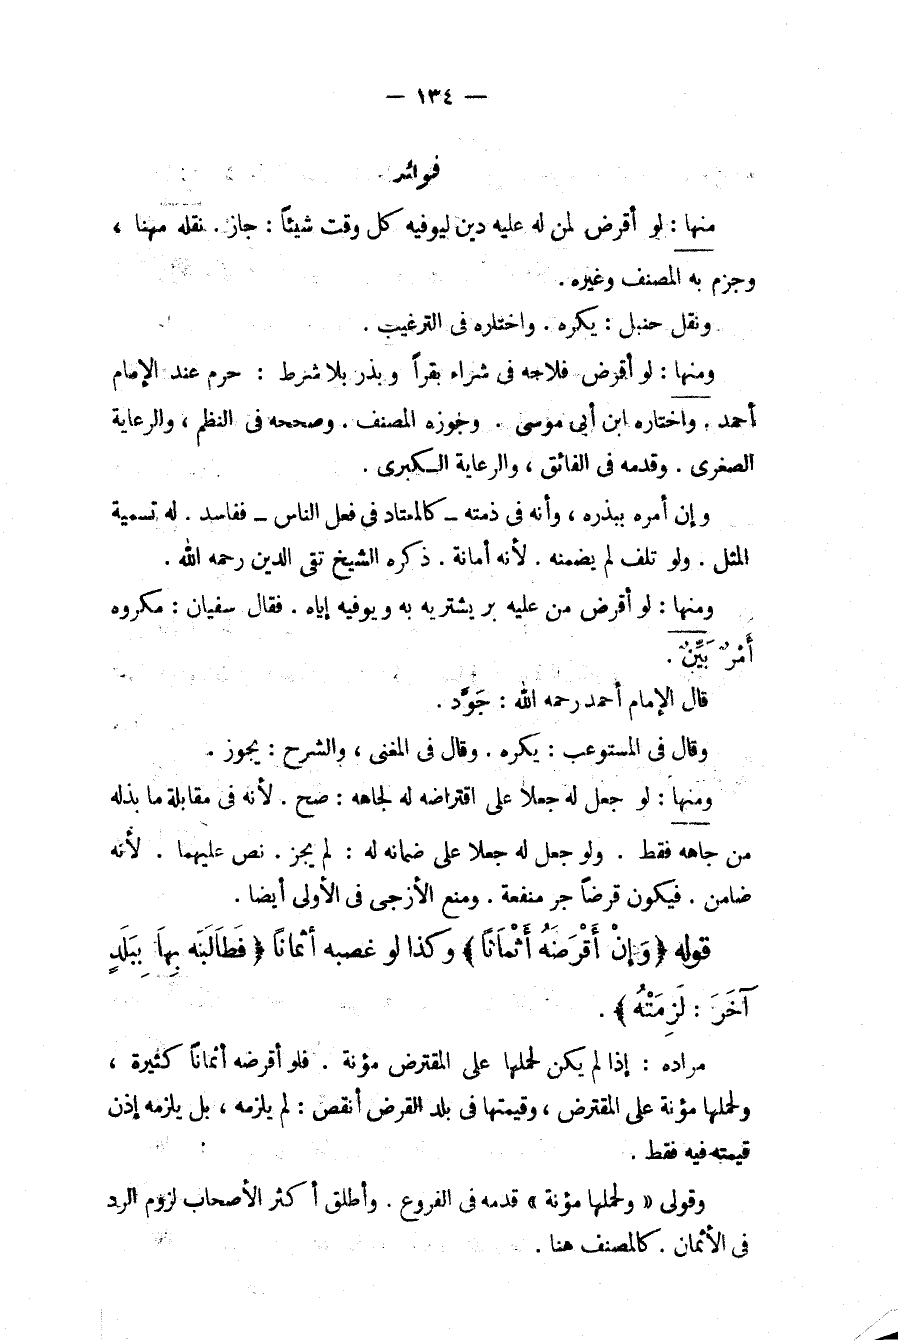 — ١٣٤ —
فوائد
منها : لو أقرض لمن له عليه دين ليوفيه كل وقت شيئاً : جاز . نقله مهنا ،
وجزم به المصنف وغيره .
ونقل حنبل : يكره . واختاره فى الترغيب .
ومنها : لو أقرض فلاحه فى شراء بقراً وبذر بلا شرط : حرم عند الإمام
أحمد . واختاره ابن أبى موسى . وجوزه المصنف . وصححه فى النظم ، والرعاية
الصغرى . وقدمه فى الفائق ، والرعاية الكبرى .
وإن أمره ببذره ، وأنه فى ذمته ــ كالمعتاد فى فعل الناس ــ ففاسد . له تسمية
المثل . ولو تلف لم يضمنه . لأنه أمانة . ذكره الشيخ تقى الدين رحمه الله .
ومنها : لو أقرض من عليه بر يشتريه به ويوفيه إياه . فقال سفيان : مكروه
أَمْرٌ بَيِّنٌ .
قال الإمام أحمد رحمه الله : جَوَّد .
وقال فى المستوعب : يكره . وقال فى المغنى ، والشرح : يجوز .
ومنها : لو جعل له جعلا على اقتراضه له لجاهه : صح . لأنه فى مقابلة ما بذله
من جاهه فقط . ولو جعل له جعلا على ضمانه له : لم يجز . نص عليهما . لأنه
ضامن . فيكون قرضاً جر منفعة . ومنع الأزجى فى الأولى أيضا .
قوله ﴿ وَإِنْ أَقْرَضَهُ أَثْمَانًا ﴾ وكذا لو غصبه أثماناً ﴿ فَطَالَبَه بِهَا بِبَلَدٍ
آخَرَ : لَزِمَتْهُ ﴾ .
مراده : إذا لم يكن لحملها على المقترض مؤنة . فلو أقرضه أثماناً كثيرة ،
ولحملها مؤنة على المقترض ، وقيمتها فى بلد القرض أنقص : لم يلزمه ، بل يلزمه إذن
قيمته فيه فقط .
وقولى « ولحملها مؤنة » قدمه فى الفروع . وأطلق أكثر الأصحاب لزوم الرد
فى الأثمان . كالمصنف هنا .